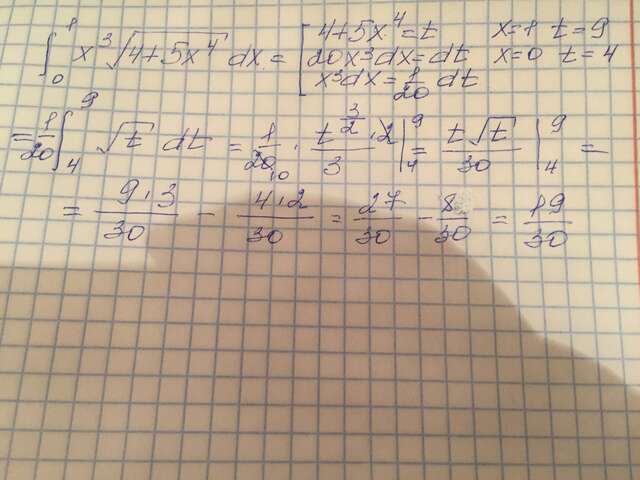 ∫₀¹ x³√(4+5x⁴) dx = [ 4+5x⁴=t x=1 t=9
20x³dx=dt x=0 t=4
x³dx=1/20 dt
=1/20 ∫₄⁹ √t dt = 1/20 · (t^(3/2)·2)/3 |₄⁹ = t√t/30 |₄⁹ =
= 9·3/30 - 4·2/30 = 27/30 - 8/30 = 19/30